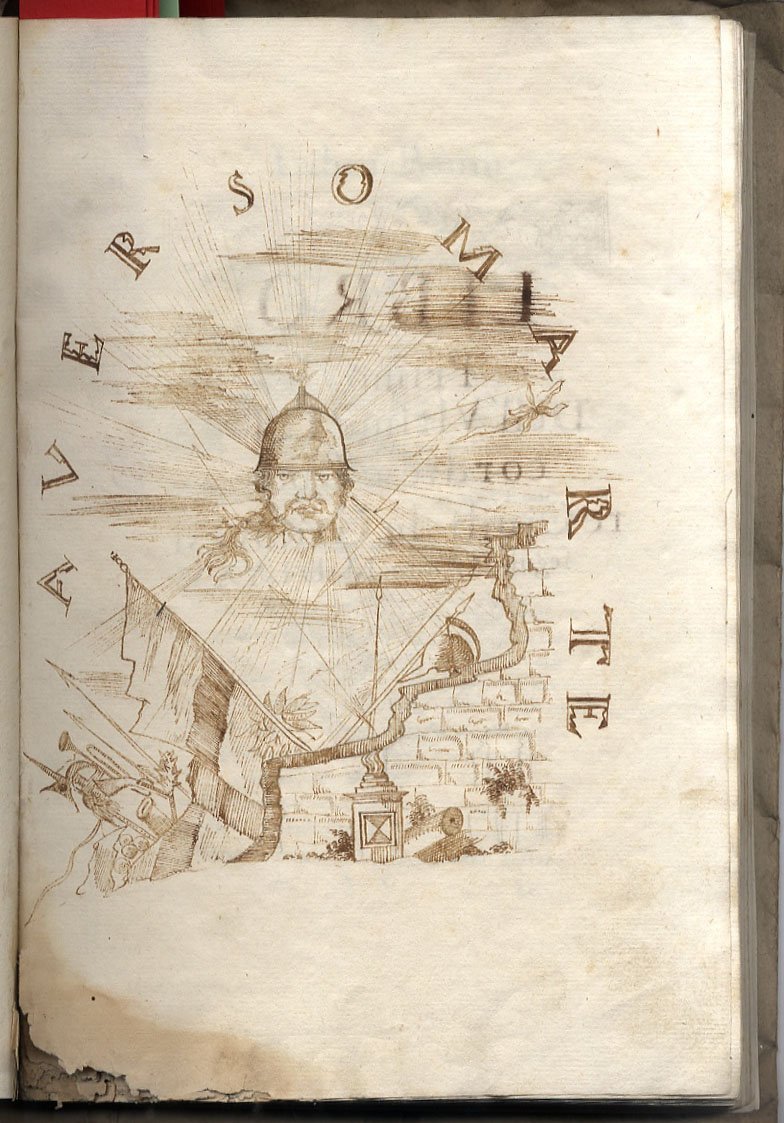 AVERSO MARTE